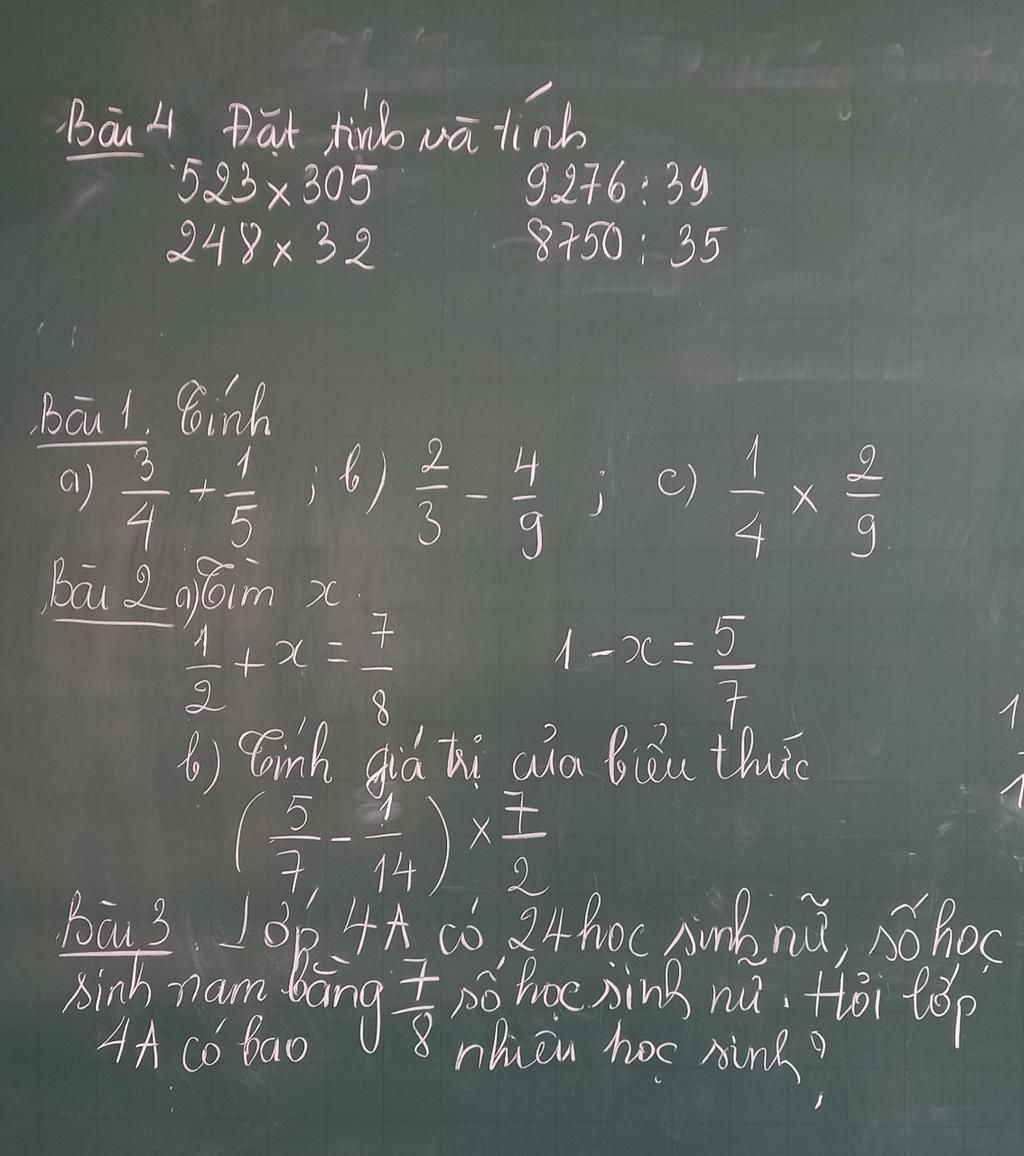 Bài 4 Đặt tính và tính
523 x 305 9276 : 39
248 x 32 8750 : 35
Bài 1. Tính
a) 3/4 + 1/5 ; b) 2/3 - 4/9 ; c) 1/4 x 2/9
Bài 2 a) Tìm x
1/2 + x = 7/8 1 - x = 5/7
b) Tính giá trị của biểu thức
(5/7 - 1/14) x 7/2
Bài 3. Lớp 4A có 24 học sinh nữ, số học
sinh nam bằng 7/8 số học sinh nữ. Hỏi lớp
4A có bao nhiêu học sinh?